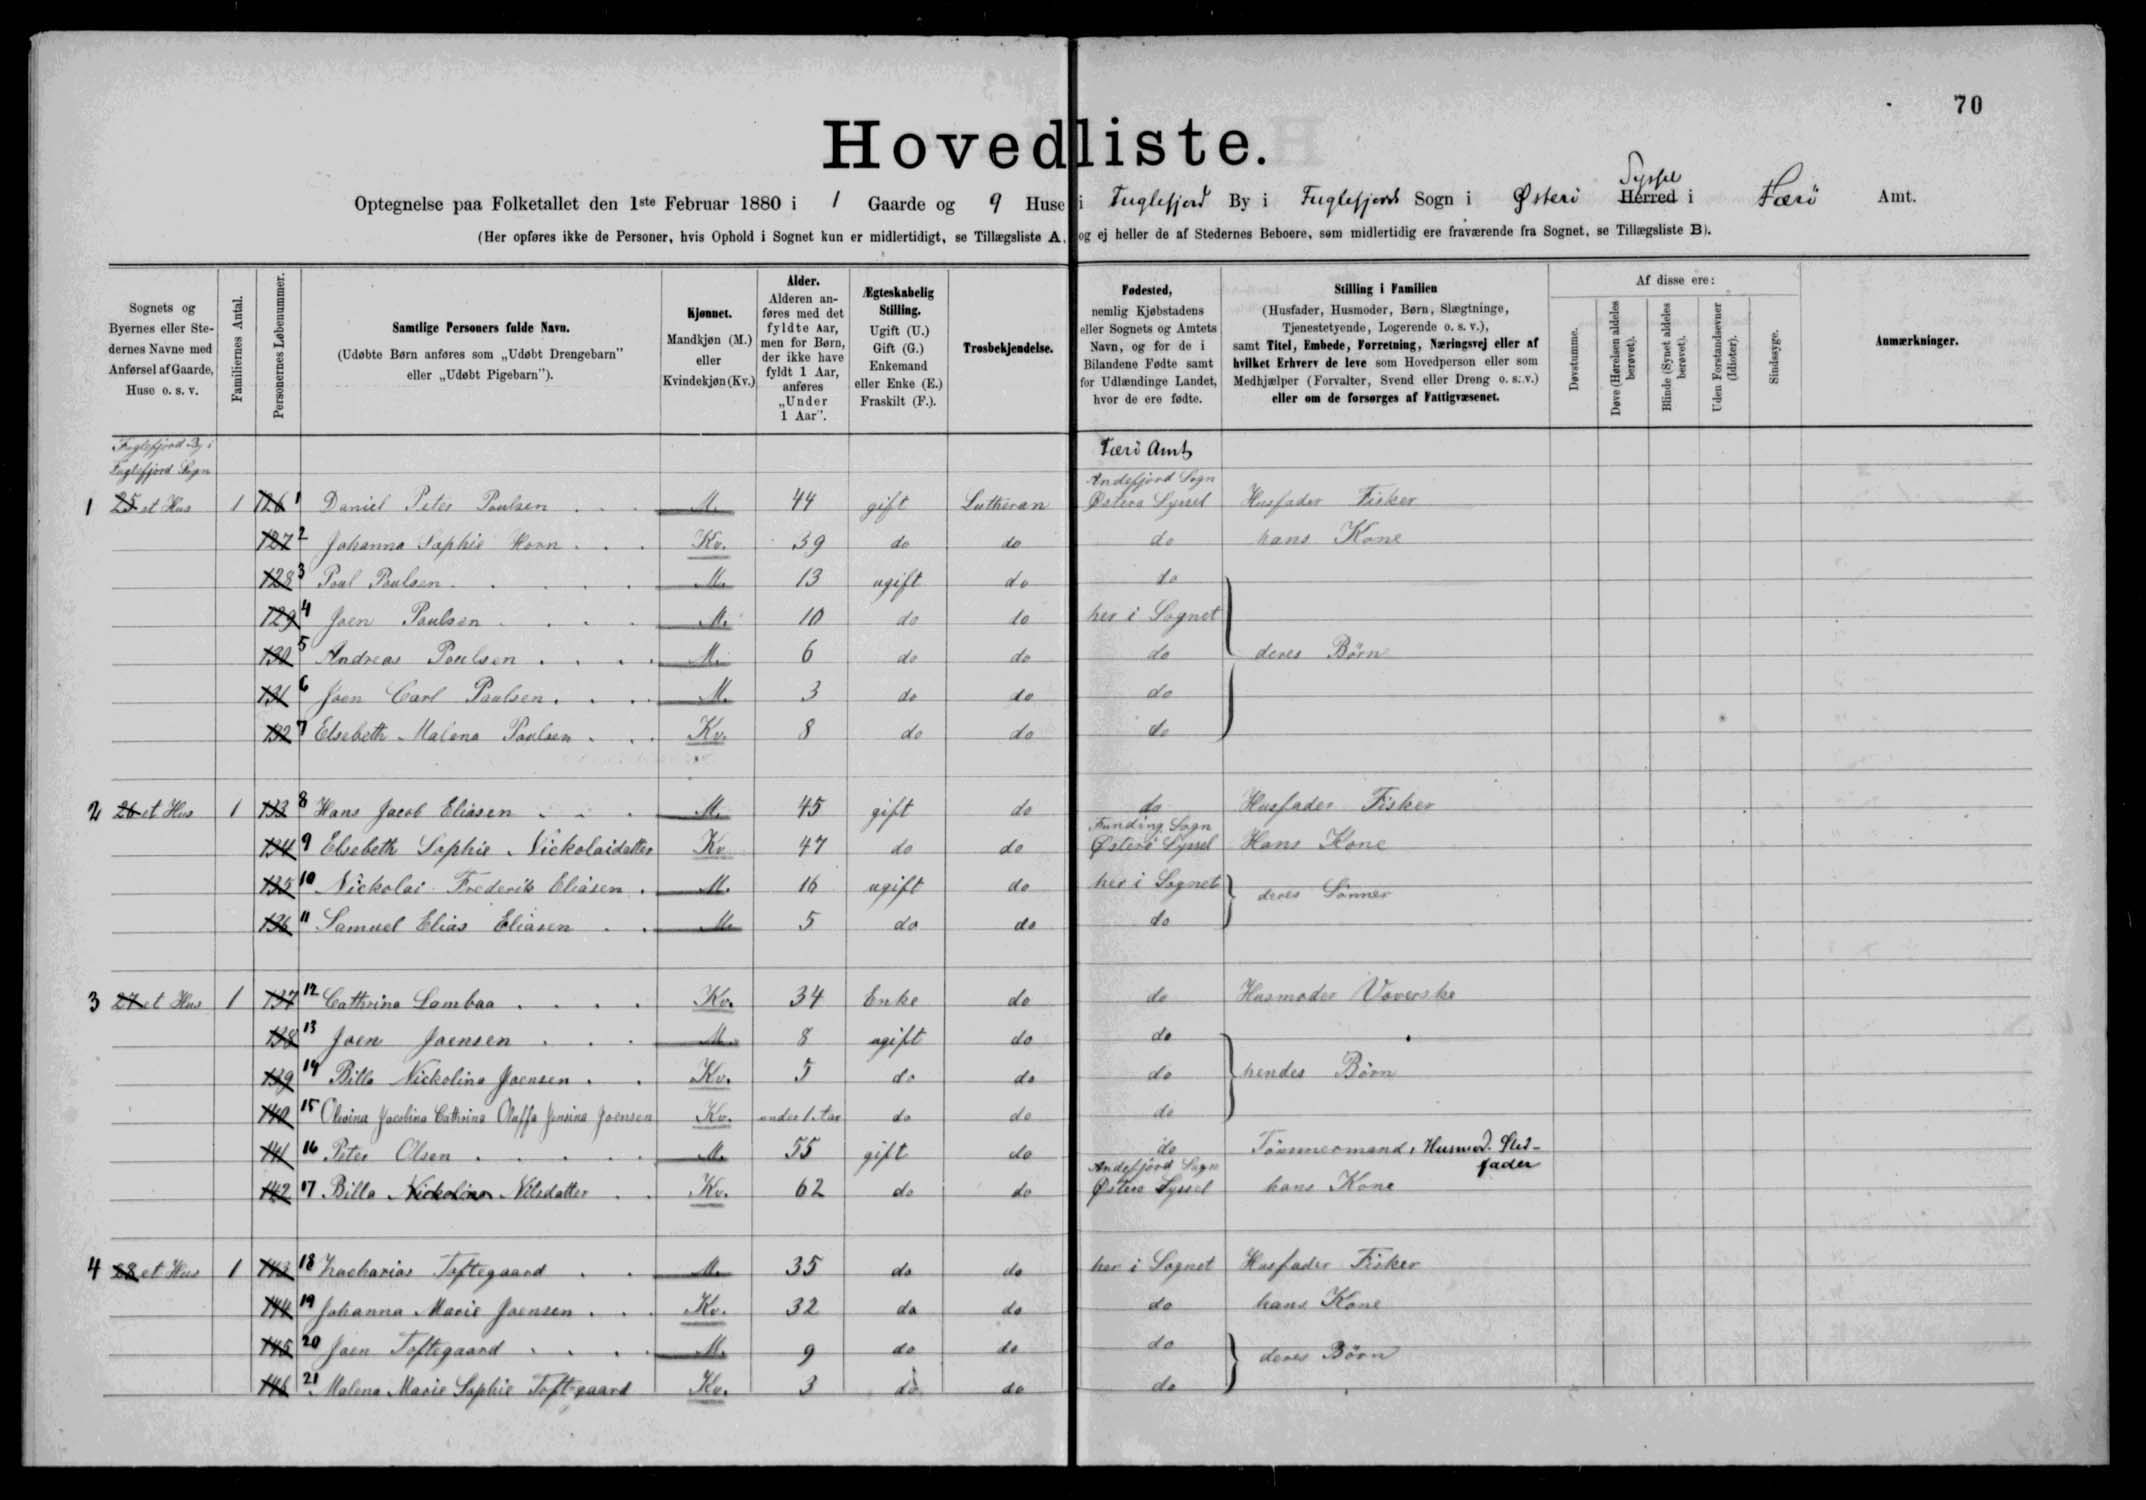 70
Hovedliste.
Optegnelse paa Folketallet den 1ste Februar 1880 i 1 Gaarde og 9 Huse i Fuglefjord By i Fuglefjords Sogn i Østerö Herred Syssel i Færö Amt.
(Her opføres ikke de Personer, hvis Ophold i Sognet kun er midlertidigt, se Tillægsliste A, og ej heller de af Stedernes Beboere, som midlertidig ere fraværende fra Sognet, se Tillægsliste B).
Sognets og Byernes eller Stedernes Navne med Anførsel af Gaarde, Huse o. s. v.
Familiernes Antal.
Personernes Løbenummer.
Samtlige Personers fulde Navn.
(Udøbte Børn anføres som „Udøbt Drengebarn" eller „Udøbt Pigebarn").
Kjønnet.
Mandkjøn (M.) eller Kvindekjøn (Kv.)
Alder.
Alderen anføres med det fyldte Aar, men for Børn, der ikke have fyldt 1 Aar, anføres „Under 1 Aar".
Ægteskabelig Stilling.
Ugift (U.) Gift (G.) Enkemand eller Enke (E.) Fraskilt (F.).
Trosbekjendelse.
Fødested,
nemlig Kjøbstadens eller Sognets og Amtets Navn, og for de i Bilandene Fødte samt for Udlændinge Landet, hvor de ere fødte.
Stilling i Familien
(Husfader, Husmoder, Børn, Slægtninge, Tjenestetyende, Logerende o. s. v.),
samt Titel, Embede, Forretning, Næringsvej eller af hvilket Erhverv de leve som Hovedperson eller som Medhjælper (Forvalter, Svend eller Dreng o. s. v.) eller om de forsørges af Fattigvæsenet.
Af disse ere:
Døvstumme.
Døve (Hørelsen aldeles berøvet).
Blinde (Synet aldeles berøvet).
Uden Forstandsevner (Idioter).
Sindssyge.
Anmærkninger.
Fuglefjord By i
Fuglefjord Sogn
Færö Amt
Andefjord Sogn
1 25 et Hus 1 126 1 Daniel Peter Poulsen M. 44 gift Lutheran Østerö Syssel Husfader Fisker
127 2 Johanna Sophie Horn Kv. 39 do do do hans Kone
128 3 Poul Poulsen M. 13 ugift do do
129 4 Joen Poulsen M. 10 do do her i Sognet
130 5 Andreas Poulsen M. 6 do do do deres Børn
131 6 Joen Carl Poulsen M. 3 do do do
132 7 Elsebeth Malena Poulsen Kv. 8 do do do
2 26 et Hus 1 133 8 Hans Jacob Eliasen M. 45 gift do do Husfader Fisker
Funding Sogn
134 9 Elsebeth Sophie Nickolaidatter Kv. 47 do do Østerö Syssel Hans Kone
135 10 Nickolai Frederik Eliasen M. 16 ugift do her i Sognet deres Sönner
136 11 Samuel Elias Eliasen M. 5 do do do
3 27 et Hus 1 137 12 Cathrina Lambaa Kv. 34 Enke do do Husmoder Væverske
138 13 Joen Joensen M. 8 ugift do do
139 14 Billa Nickolina Joensen Kv. 5 do do do hendes Börn
140 15 Olevina Jacobina Cathrina Olaffa Jensina Joensen Kv. under 1 Aar do do do
141 16 Peter Olsen M. 55 gift do do Tömmermand, Husmod. Sted-
fader
Andefjord Sogn
142 17 Billa Nickolina Nilsdatter Kv. 62 do do Østerö Syssel hans Kone
4 28 et Hus 1 143 18 Zacharias Toftegaard M. 35 do do her i Sognet Husfader Fisker
144 19 Johanna Marie Joensen Kv. 32 do do do hans Kone
145 20 Joen Toftegaard M. 9 do do do deres Börn
146 21 Malena Marie Sophie Toftegaard Kv. 3 do do do